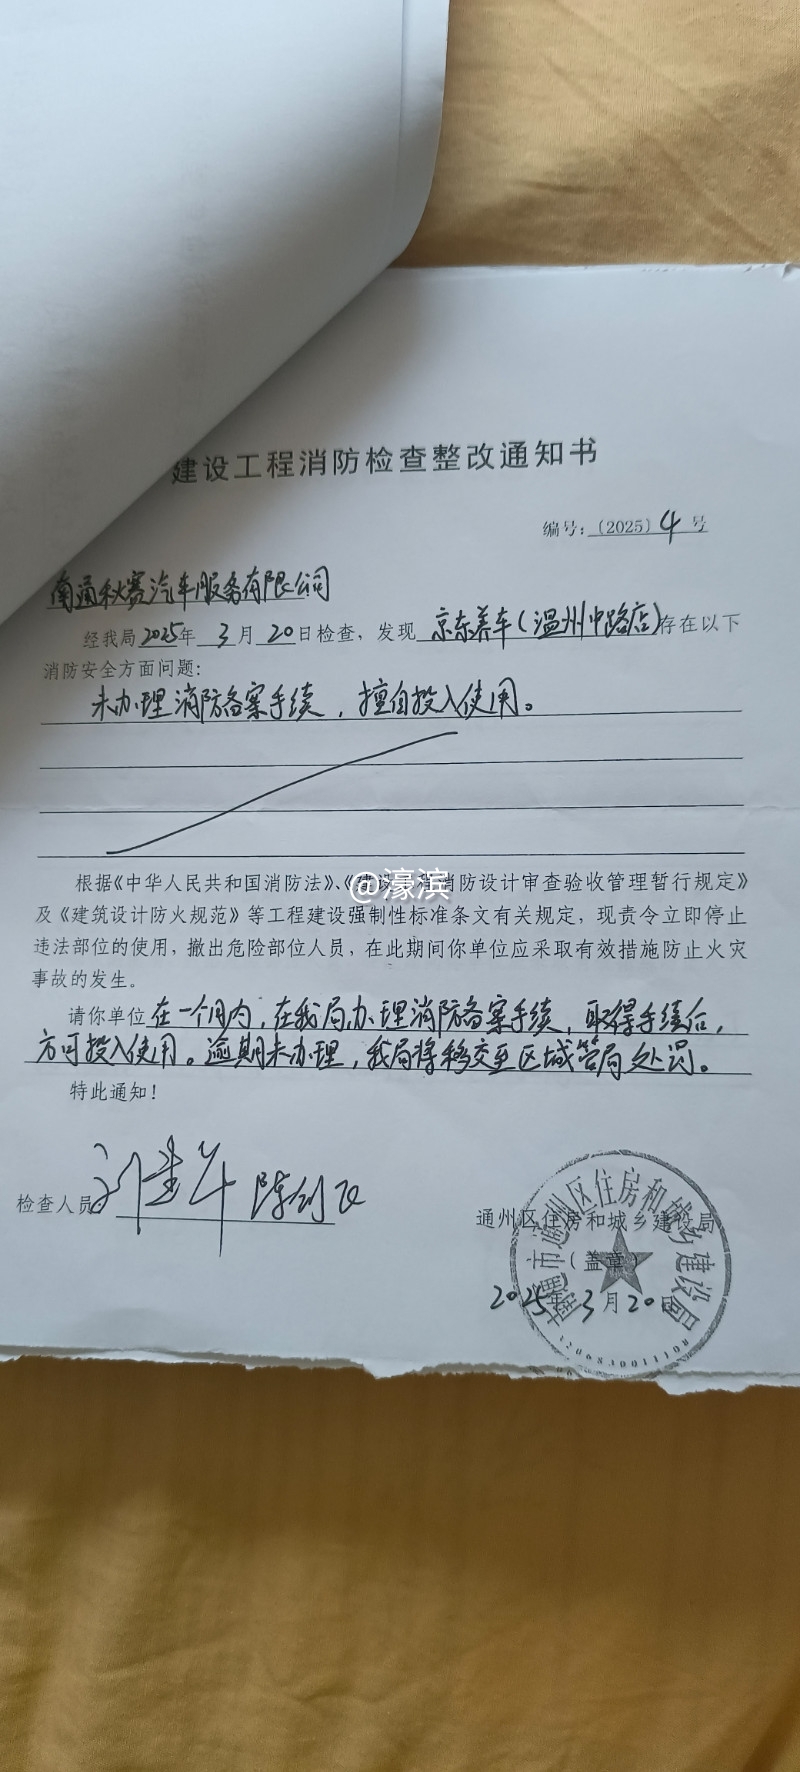 建设工程消防检查整改通知书
编号：（2025）4号
南通秋赛汽车服务有限公司
经我局2025年3月20日检查，发现京东养车（温州中路店）存在以下
消防安全方面问题：
未办理消防备案手续，擅自投入使用。
@濠滨
根据《中华人民共和国消防法》、《建设工程消防设计审查验收管理暂行规定》
及《建筑设计防火规范》等工程建设强制性标准条文有关规定，现责令立即停止
违法部位的使用，撤出危险部位人员，在此期间你单位应采取有效措施防止火灾
事故的发生。
请你单位在一个月内，在我局办理消防备案手续，取得手续后，
方可投入使用。逾期未办理，我局将移交至区城管局处罚。
特此通知！
检查人员
通州区住房和城乡建设局
（盖章）
2025年3月20日
南通市通州区住房和城乡建设局